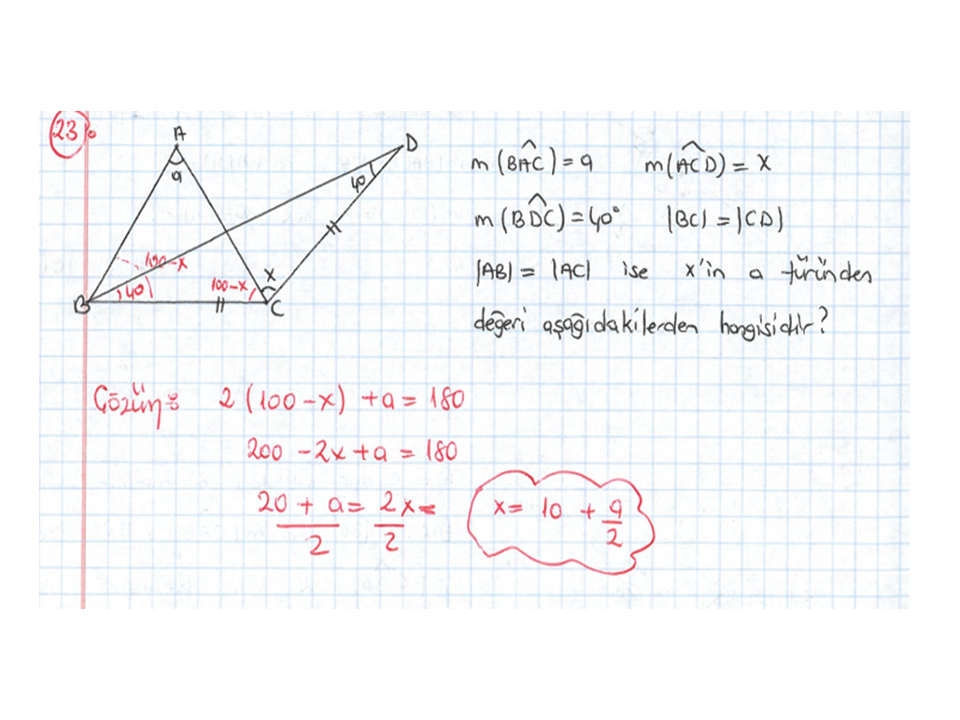 23)
A
D
a
40
m(BÂC) = a m(AĈD) = x
m(BD̂C) = 40° |BC| = |CD|
|AB| = |AC| ise x'in a türünden
değeri aşağıdakilerden hangisidir?
100-x
x
40
100-x
B
C
Çözüm: 2(100-x) + a = 180
200 - 2x + a = 180
20 + a = 2x
2 2
x = 10 + a/2